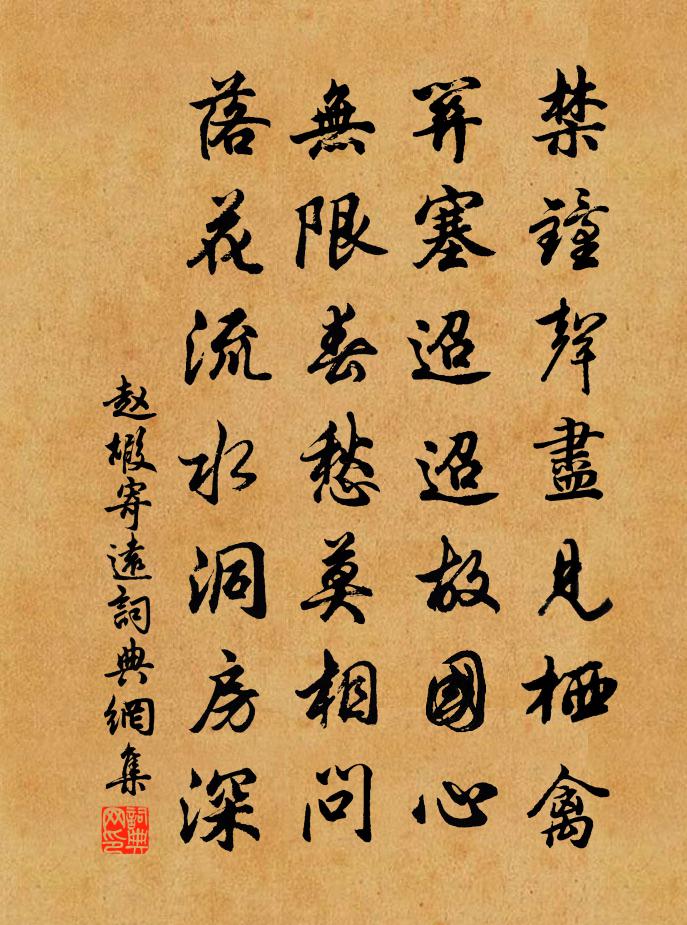 禁鐘聲盡見栖禽
關塞迢迢故國心
無限春愁莫相問
落花流水洞房深
赵椵寄遠詞典網集
詞典网印